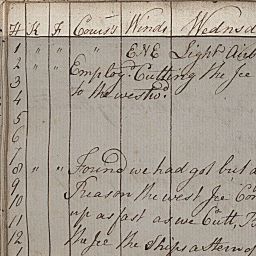 H K F Cours Winds Wednsd
1 " " " ENE Light Airs
2 Employd Cutting the Ice
3 to the westwd
4
5
6
7
8 " " Found we had got but a
9 Reason the west Ice Con
10 up as fast as we Cutt,
11 the Ice the Ships astern of
12